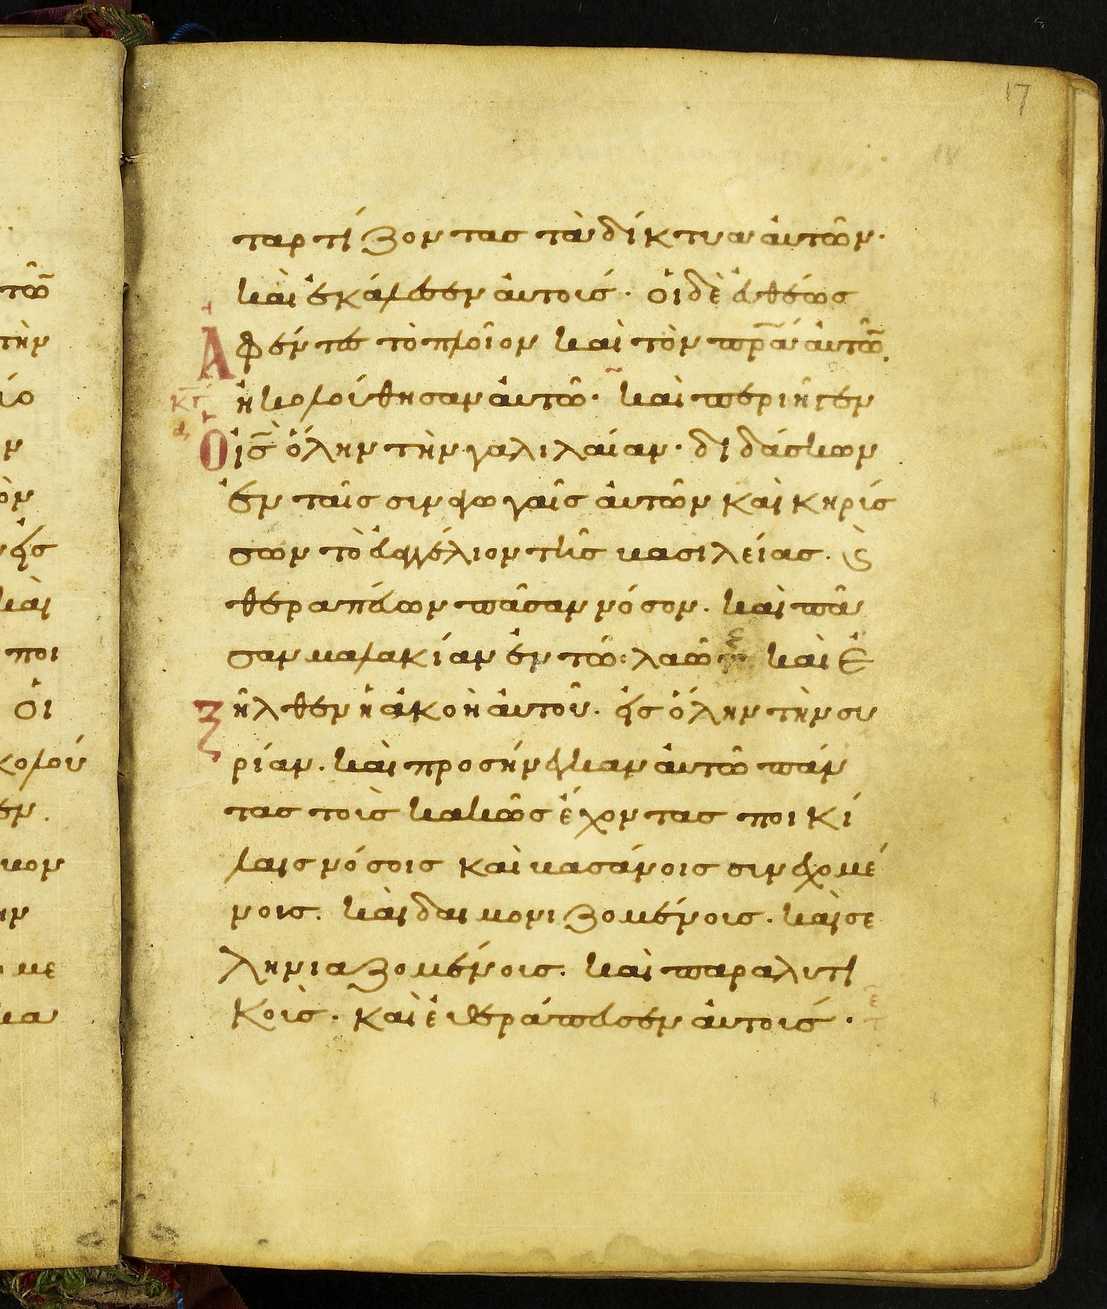 17
ταρτίζοντας τὰ δίκτυα ἀυτῶν·
καὶ ἐκάλεσεν ἀυτοὺς· οἱ δὲ ἐυθέως
Ἀφέντες τὸ πλοῖον καὶ τὸν πρ̅α ἀυτῶ̅
ἠκολούθησαν ἀυτῶ· καὶ περιῆγεν
Ὁ ι̅ς̅ ὅλην τὴν γαλιλαίαν· διδάσκων
ἐν ταῖς συναγωγαῖς ἀυτῶν καὶ κηρύσ
σων τὸ ἐυαγγέλιον τῆς βασιλείας. ϗ
θεραπέυων πᾶσαν νόσον. καὶ πᾶ
σαν μαλακίαν ἐν τῶ λαῶ καὶ Ἐ
ξῆλθεν ἡ ἀκοὴ ἀυτοῦ. εἰς ὅλην τὴν συ
ρίαν. καὶ προσήνεγκαν ἀυτῶ πάν
τας τοὺς κακῶς ἔχοντας ποικί
λαις νόσοις καὶ βασάνοις συνεχομέ
νους. καὶ δαιμονιζομένους. καὶ σε
ληνιαζομένους. καὶ παραλυτι
κοὺς. καὶ ἐθεράπευσεν ἀυτοὺς·